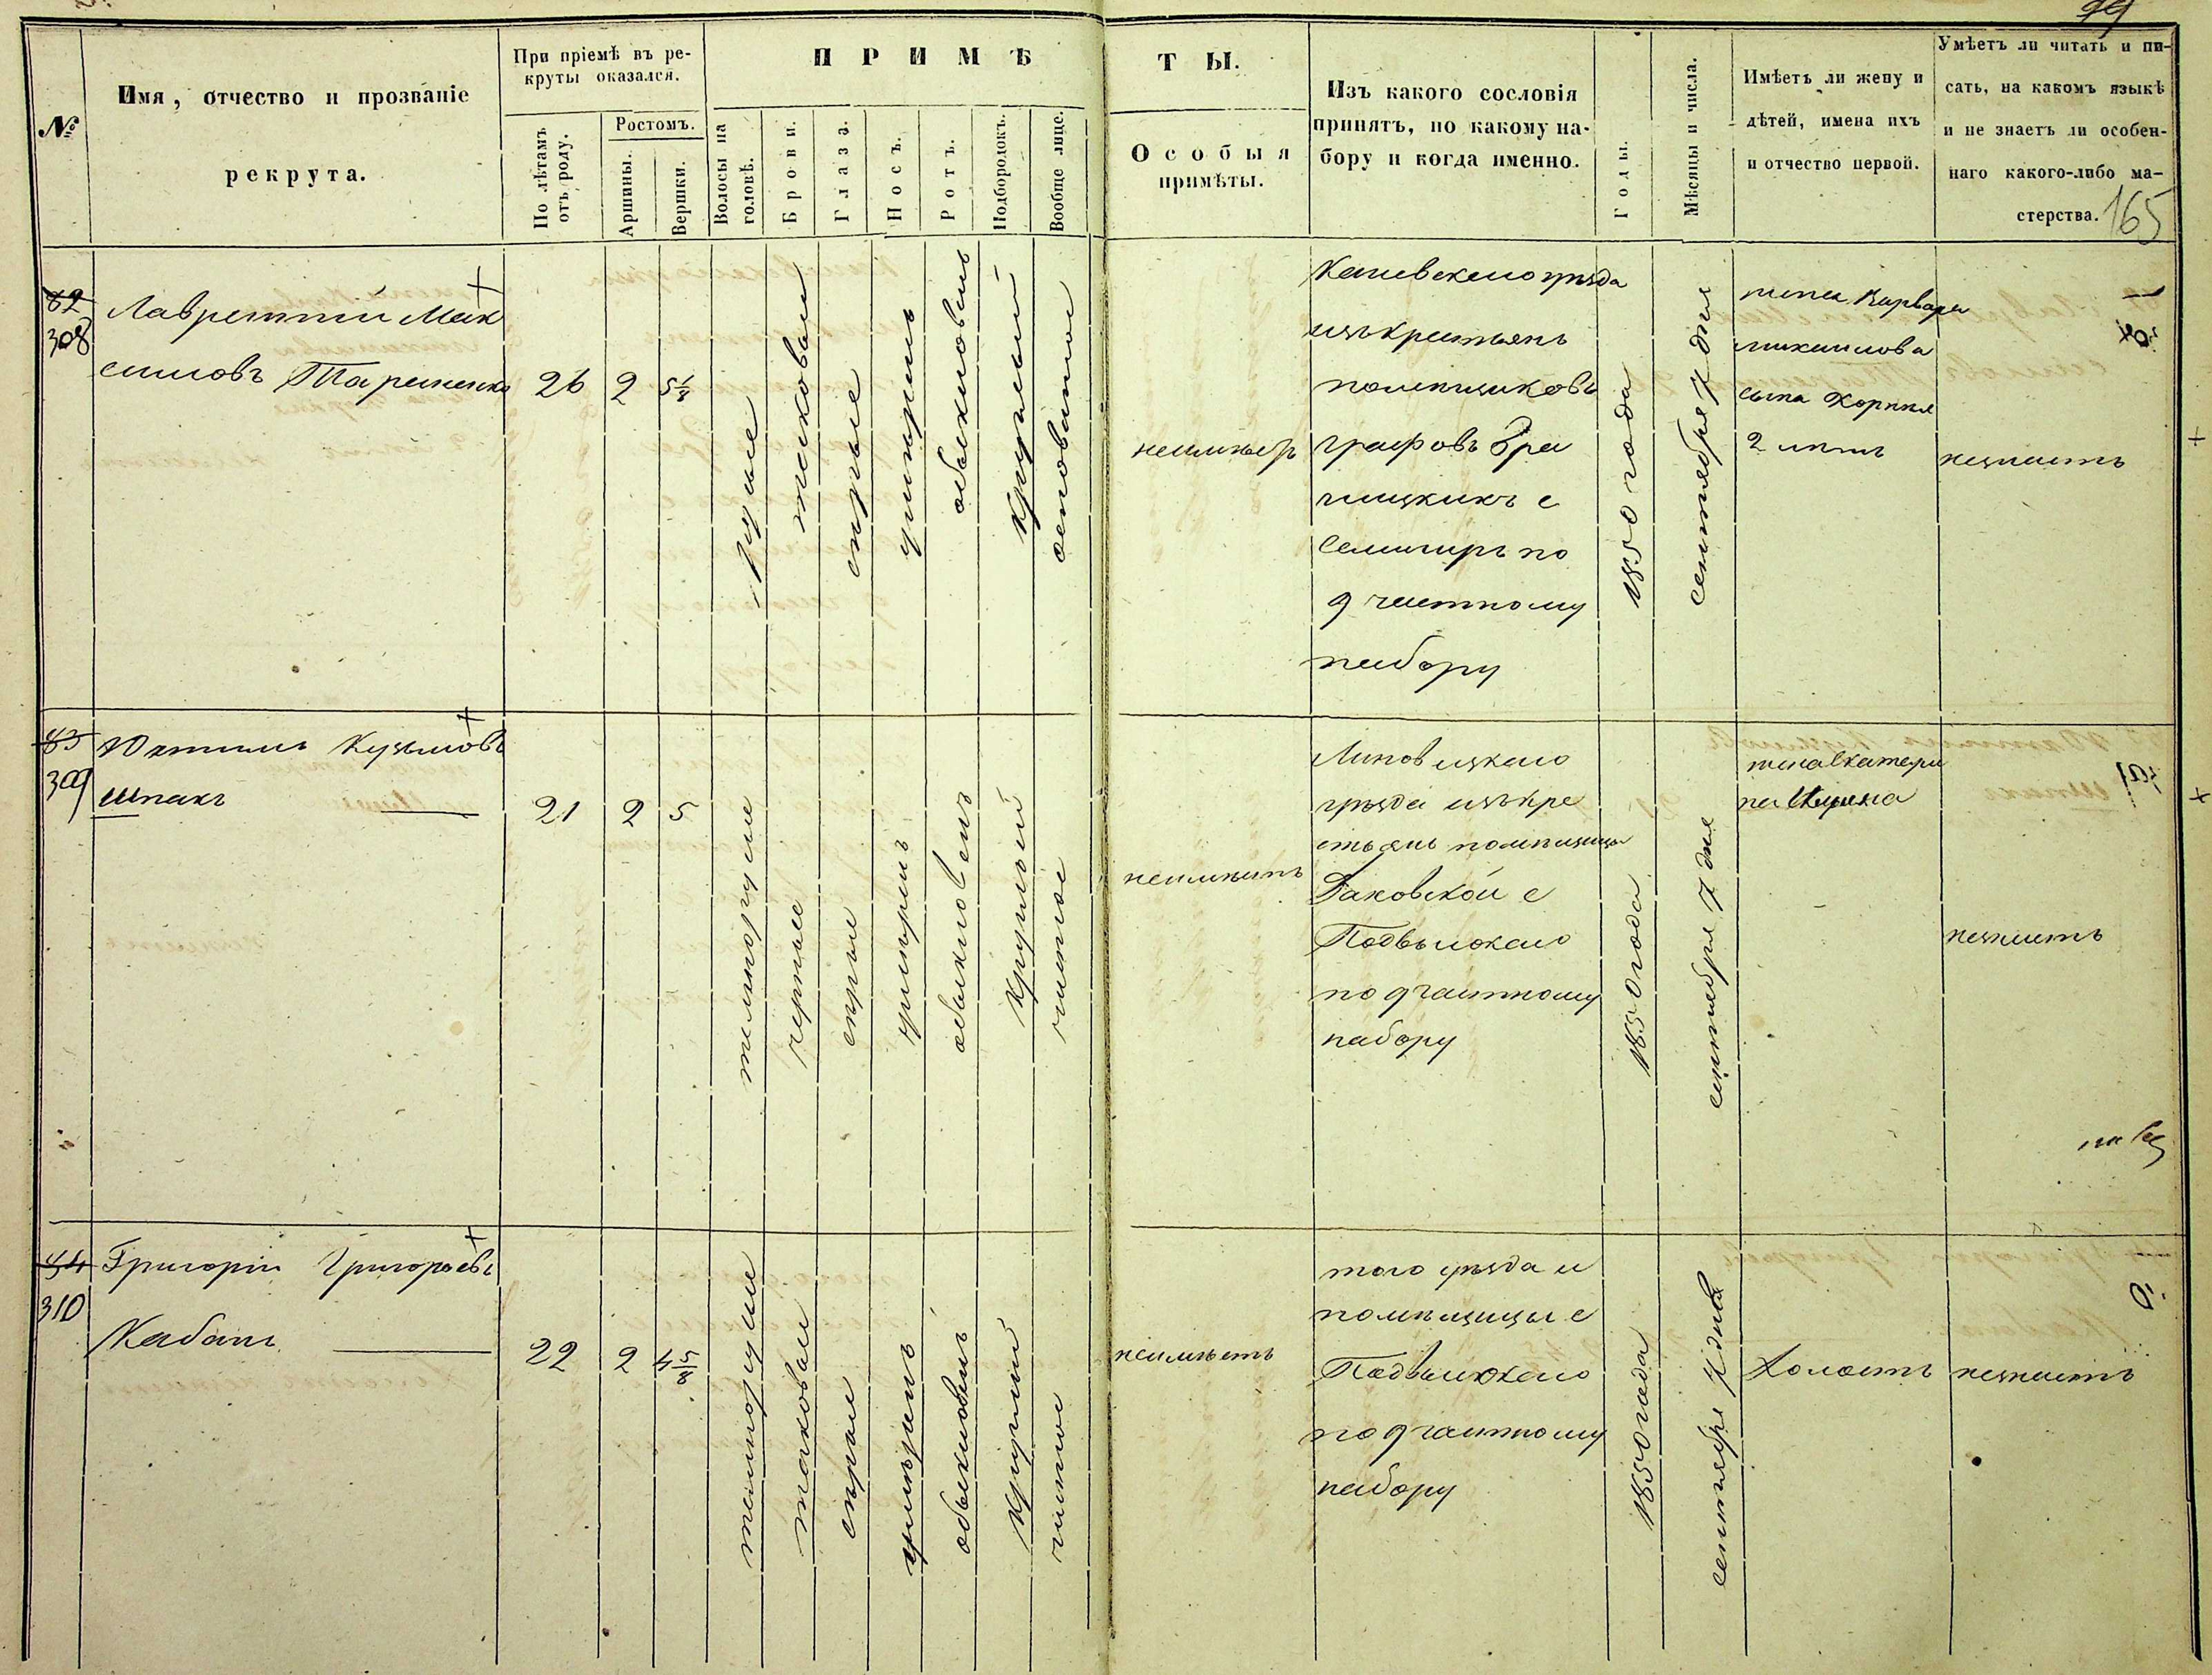 79
№
Имя, отчество и прозваніе
рекрута.
При пріемѣ въ ре-
круты оказался.
По лѣтамъ
отъ роду.
Ростомъ.
Аршины.
Вершки.
ПРИМѢ
Волосы на
головѣ.
Брови.
Глаза.
Носъ.
Ротъ.
Подбородокъ.
Вообще лице.
ТЫ.
Особыя
примѣты.
Изъ какого сословія
принятъ, по какому на-
бору и когда именно.
Годы.
Мѣсяцы и числа.
Имѣетъ ли жену и
дѣтей, имена ихъ
и отчество первой.
Умѣетъ ли читать и пи-
сать, на какомъ языкѣ
и не знаетъ ли особен-
наго какого-либо ма-
стерства.
165
82
308
Лаврентій Мак
симовъ Тараненко
26
2
русые
сѣрые
умѣренъ
обыкновенъ
круглый
Каневскаго уѣзда
изъ крестьянъ
помѣщиковъ
графовъ Бра
ницкихъ с
по
9 частному
набору
1850 года
сентября 7 дня
жена Варвара
сына
2 лѣтъ
незнаетъ
83
309
Кузьмовъ
Шпакъ
21
2
5
темнорусые
черные
сѣрые
умѣренъ
обыкновенъ
круглый
чистое
неимѣетъ
Липовецкаго
уѣзда изъ кре
стьянъ помѣщицы
с
Подвысокаго
по 9 частному
набору
1850 года
сентября 7 дня
жена Екатери
на
незнаетъ
84
310
Григорій Григорьевъ
Кабанъ
22
2
4 5/8
темнорусые
таковые
сѣрые
умѣренъ
обыкновенъ
круглый
чистое
неимѣетъ
того уѣзда и
помѣщицы с
Подвысокаго
по 9 частному
набору
1850 года
сентября 7 дня
Холостъ
незнаетъ